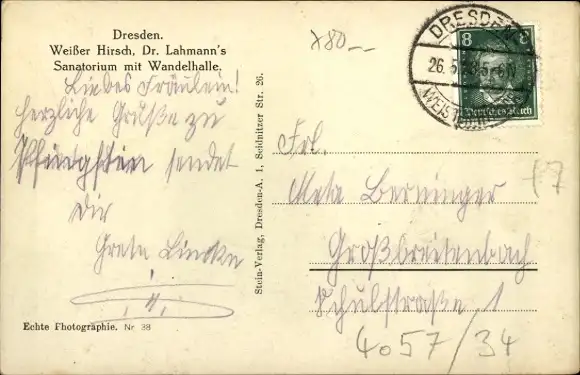 Dresden.
Weißer Hirsch, Dr. Lahmann's
Sanatorium mit Wandelhalle.
Liebes Fräulein!
Herzliche Grüße zu
Pfingsten sendet
Dir
Grete
Echte Photographie. Nr. 38
Stein-Verlag, Dresden-A. 1, Seidnitzer Str. 26.
x80.—
DRESDEN
26.5.
WEISSER
8 8
Deutsches Reich
Frl.
Meta Berninger
Großbreitenbach
Schulstraße 1
f7
4057/34